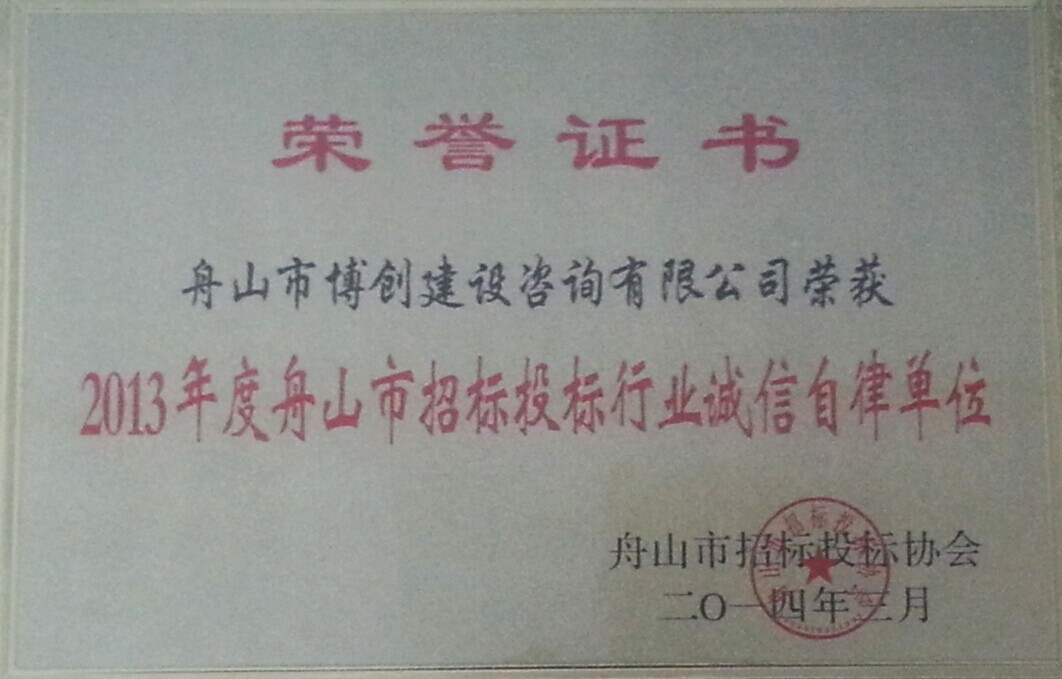 荣誉证书
舟山市博创建设咨询有限公司荣获
2013年度舟山市招标投标行业诚信自律单位
舟山市招标投标协会
二O一四年三月